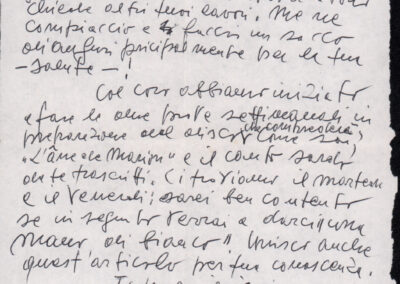 altri tuoi lavori. Me ne
compiaccio e faccio un sacco
di auguri principalmente per la tua
– salute – !
Col coro abbiamo iniziato
a fare le due prove settimanali in
preparazione del disco che comprenderà, come sai,
"L'âme de Marion" e il canto
da te trascritti. Ci troviamo il martedì
e il venerdì; sarei ben contento
se in seguito verrai a darci una
mano di bianco". Unisco anche
quest'articolo per tua conoscenza.